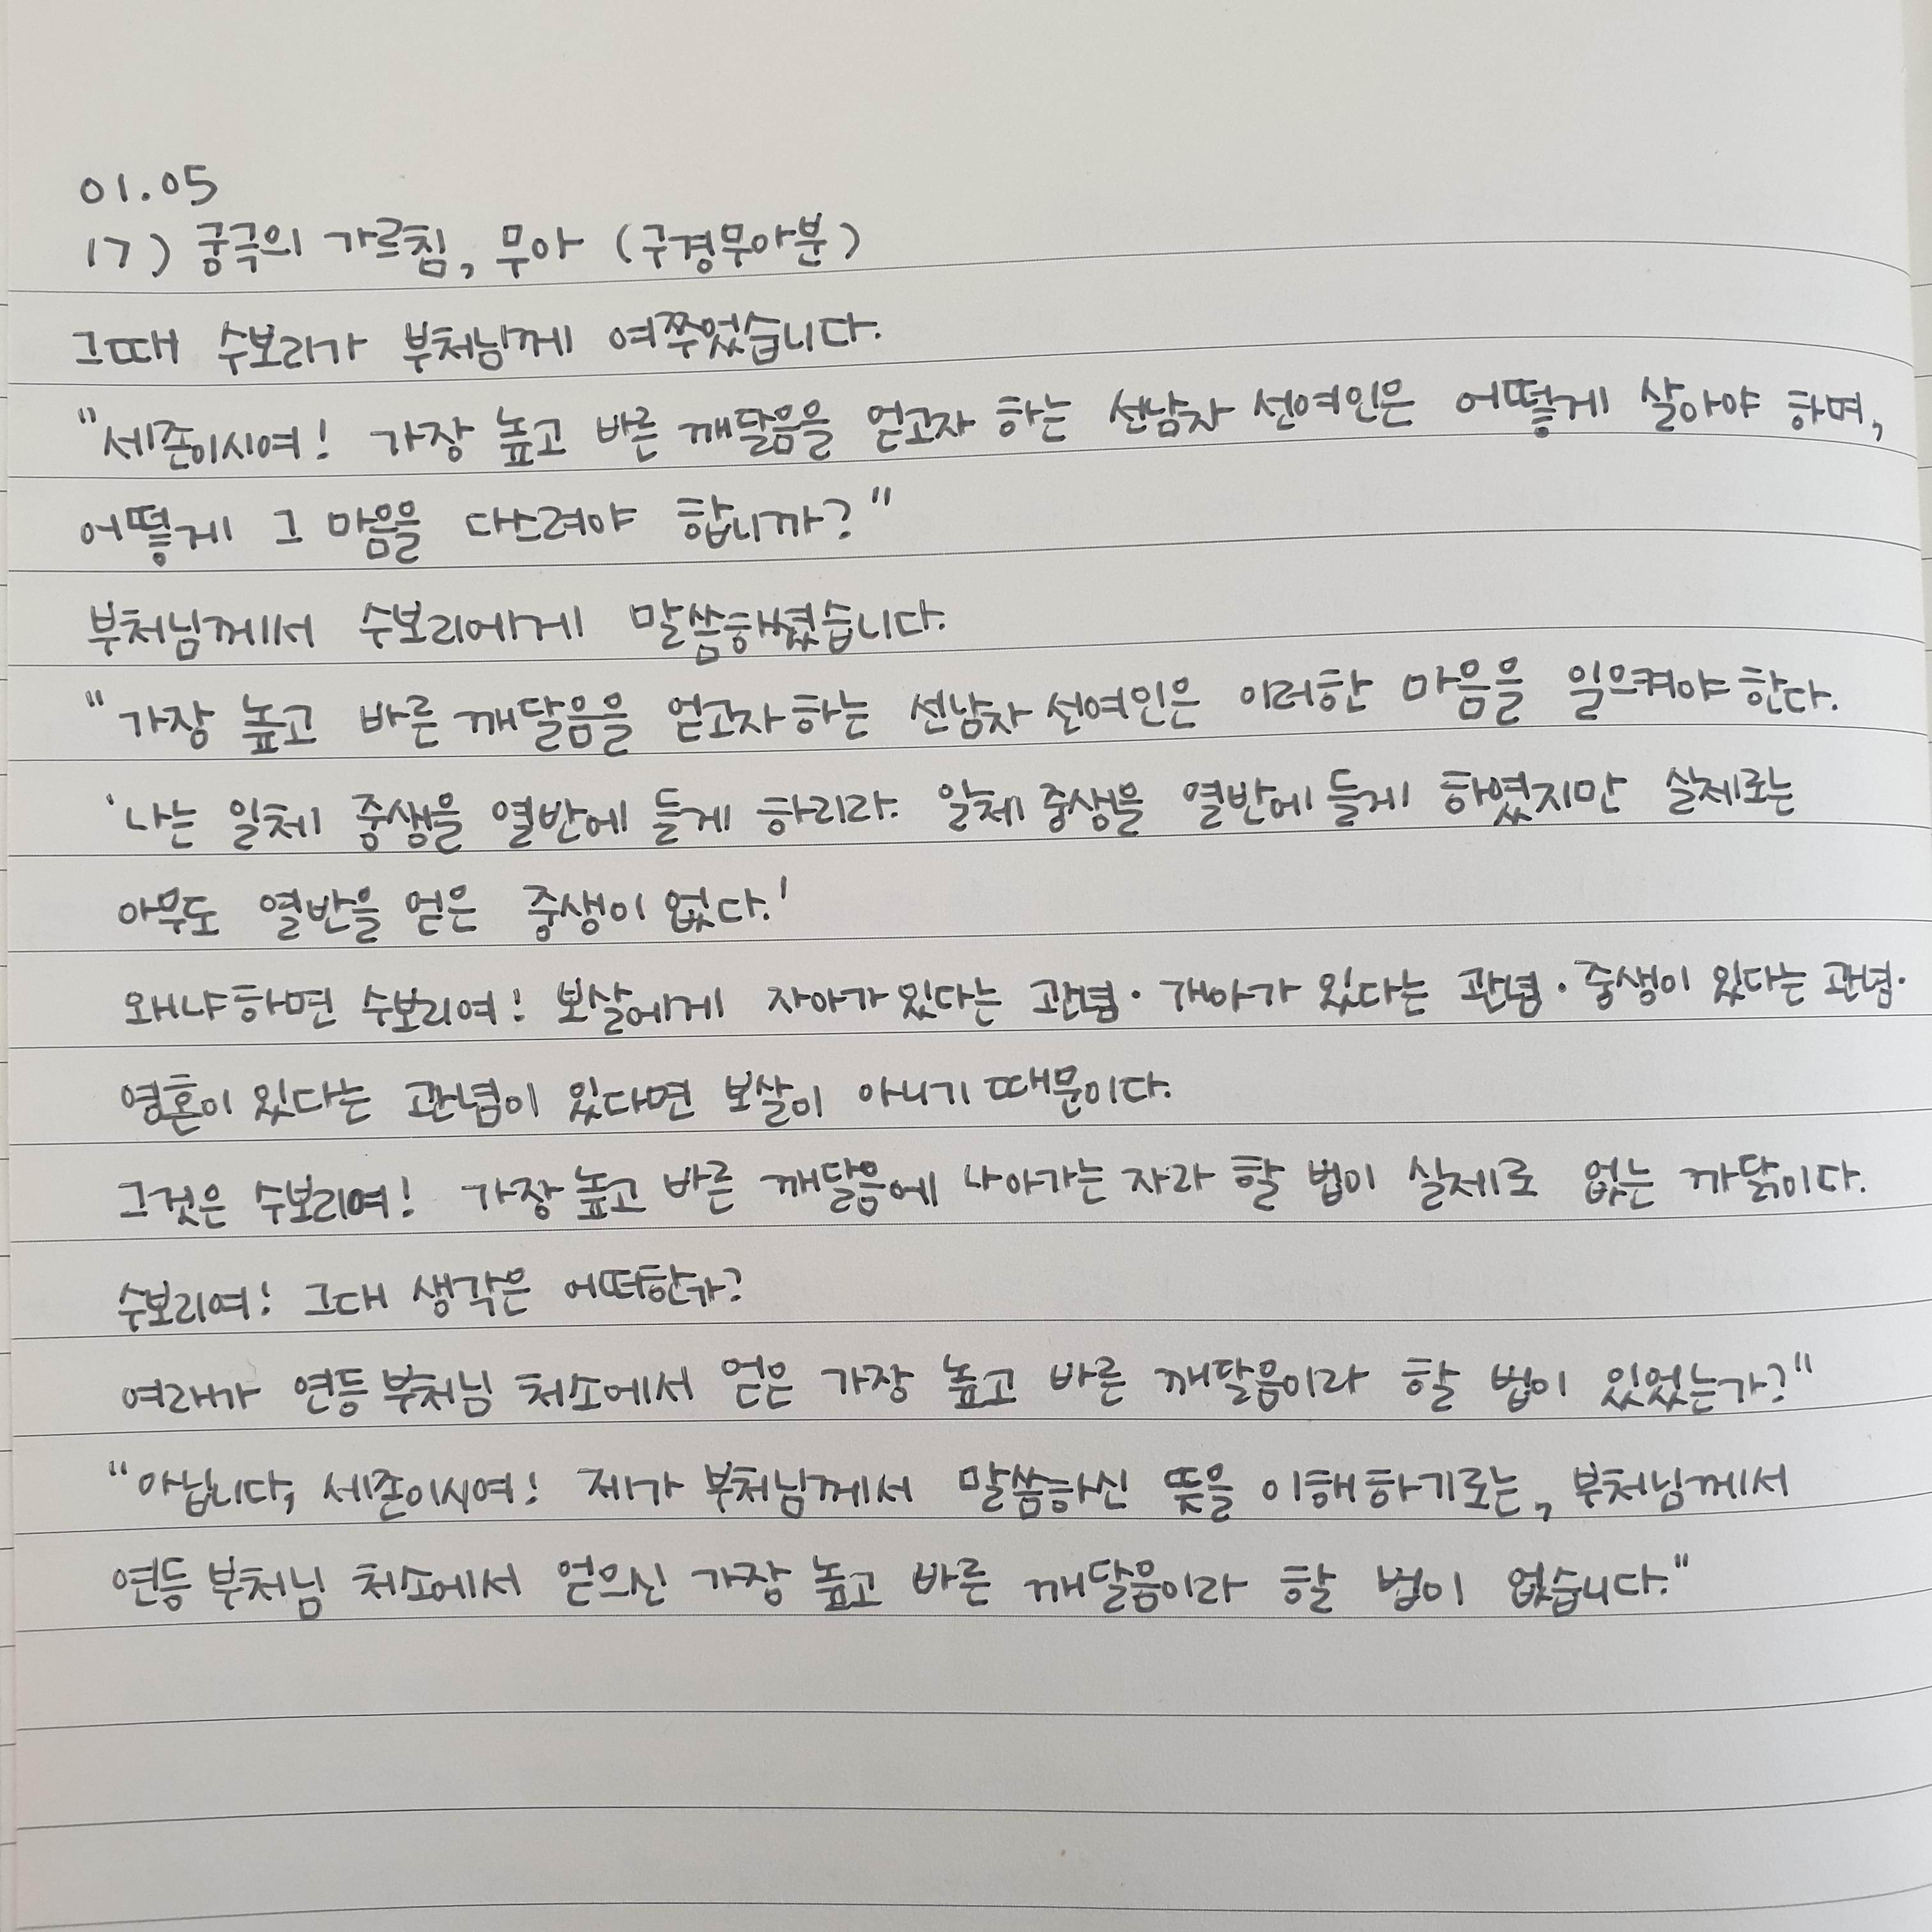 01.05
17) 궁극의 가르침, 무아 (구경무아분)
그때 수보리가 부처님께 여쭈었습니다.
"세존이시여! 가장 높고 바른 깨달음을 얻고자 하는 선남자 선여인은 어떻게 살아야 하며,
어떻게 그 마음을 다스려야 합니까?"
부처님께서 수보리에게 말씀하셨습니다.
"가장 높고 바른 깨달음을 얻고자 하는 선남자 선여인은 이러한 마음을 일으켜야 한다.
'나는 일체 중생을 열반에 들게 하리라. 일체 중생을 열반에 들게 하였지만 실제로는
아무도 열반을 얻은 중생이 없다.'
왜냐하면 수보리여! 보살에게 자아가 있다는 관념·개아가 있다는 관념·중생이 있다는 관념·
영혼이 있다는 관념이 있다면 보살이 아니기 때문이다.
그것은 수보리여! 가장 높고 바른 깨달음에 나아가는 자라 할 법이 실제로 없는 까닭이다.
수보리여! 그대 생각은 어떠한가?
여래가 연등 부처님 처소에서 얻은 가장 높고 바른 깨달음이라 할 법이 있었는가?"
"아닙니다, 세존이시여! 제가 부처님께서 말씀하신 뜻을 이해하기로는, 부처님께서
연등 부처님 처소에서 얻으신 가장 높고 바른 깨달음이라 할 법이 없습니다."